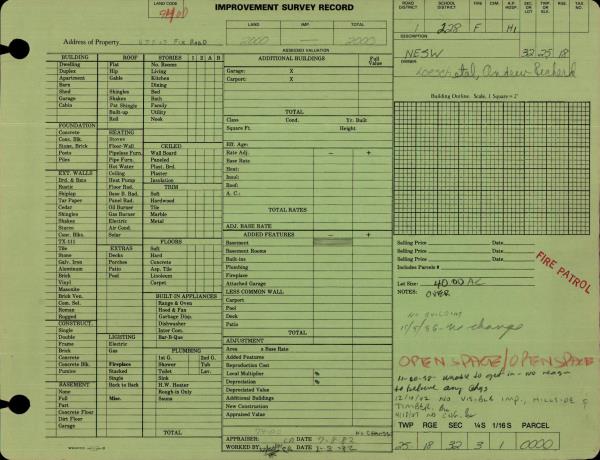 LAND CODE
IMPROVEMENT SURVEY RECORD
ROAD DISTRICT
SCHOOL DISTRICT
F
C
A.P. HOSP.
SEC. OR LOT
TWP. OR BLK.
RGE.
TAX NO.
1 228 F H1
Address of Property
Fix Road
LAND
IMP.
TOTAL
2000 — 2000
ASSESSED VALUATION
DESCRIPTION
NESW 32-25-18
OWNER
BUILDING ROOF STORIES 1 2 A B
Dwelling Flat No. Rooms
Duplex Hip Living
Apartment Gable Kitchen
Barn Dining
Shed Shingles Bed
Garage Shakes Bath
Cabin Pat. Shingle Family
Built-up Utility
Roll Nook
FOUNDATION
Concrete HEATING
Conc. Blk. Stoves CEILED
Stone, Brick Floor-Wall Wall Board
Posts Pipeless Furn. Paneled
Piles Pipe Furn. Plast. Brd.
Hot Water Plaster
EXT. WALLS Ceiling
Brd. & Bats Heat Pump Insulation
Rustic Floor Rad. TRIM
Shiplap Base B. Rad. Soft
Tar Paper Panel Rad. Hardwood
Cedar Oil Burner Tile
Shingles Gas Burner Marble
Shakes Electric Metal
Stucco Air Cond.
Conc. Blks. Solar
TX-111 FLOORS
Tile EXTRAS Soft
Stone Decks Hard
Galv. Iron Porches Concrete
Aluminum Patio Tile
Brick Asp. Pool Linoleum
Vinyl Carpet
Masonite
Brick Ven. BUILT-IN APPLIANCES
Com. Sel. Range & Oven
Roman Hood & Fan
Rugged Garbage Disp.
CONSTRUCT. Dishwasher
Single Inter Com.
Double LIGHTING Bar-B-Que
Frame Electric
Brick Gas PLUMBING
Concrete 1st G. 2nd G.
Concrete Blk. Fireplace Shower Tub
Pumice Stacked Toilet Lav.
Single Sink
BASEMENT Back to Back H.W. Heater
None Rough-in Only
Full Misc. Sauna
Part
Concrete Floor
Dirt Floor
Garage
TOTAL
ADDITIONAL BUILDINGS
Full Value
Garage: X
Carport: X
TOTAL
Class Cond. Yr. Built
Square Ft. Height
Eff. Age:
Rate Adj. – +
Base Rate
Heat:
Insul:
Roof:
A. C.:
TOTAL RATES
ADJ. BASE RATE
ADDED FEATURES – +
Basement
Basement Rooms
Built-ins
Plumbing
Fireplace
Attached Garage
LESS COMMON WALL
Carport
Pool
Deck
Patio
TOTAL
ADJUSTMENT
Area x Base Rate
Added Features
Reproduction Cost
Local Multiplier %
Depreciation %
Depreciated Value
Additional Buildings
New Construction
Appraised Value
No Change
APPRAISER:
WORKED BY
Building Outline. Scale, 1 Square = 2'
Selling Price Date.
Selling Price Date.
Selling Price Date.
Includes Parcels #
FIRE PATROL
Lot Size: 40.00 AC
NOTES: OVER
NO BUILDING
no change
OPEN SPACE/OPEN SPACE
unable to get in - no reason
to believe any bldgs
12/10/02 NO VISIBLE IMP., HILLSIDE &
TIMBER.
TWP RGE SEC ¼S 1/16 S PARCEL
25 18 32 3 1 0000